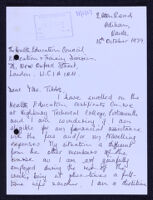 16th October 1979
The Health Education Council
Education & Training Division
78, New Oxford Street
London. W.C.1A 1AH
Dear Mrs.
I have enrolled on the
Health Education Certificate Course
at Highbury Technical College, Portsmouth
and I am wondering if I am
eligible for any financial assistance
with the fees and/or my travelling
expenses. My situation is different
from the other members of this
course as I am not gainfully
employed during the whole of the
week, being at present a
time night worker. I am a